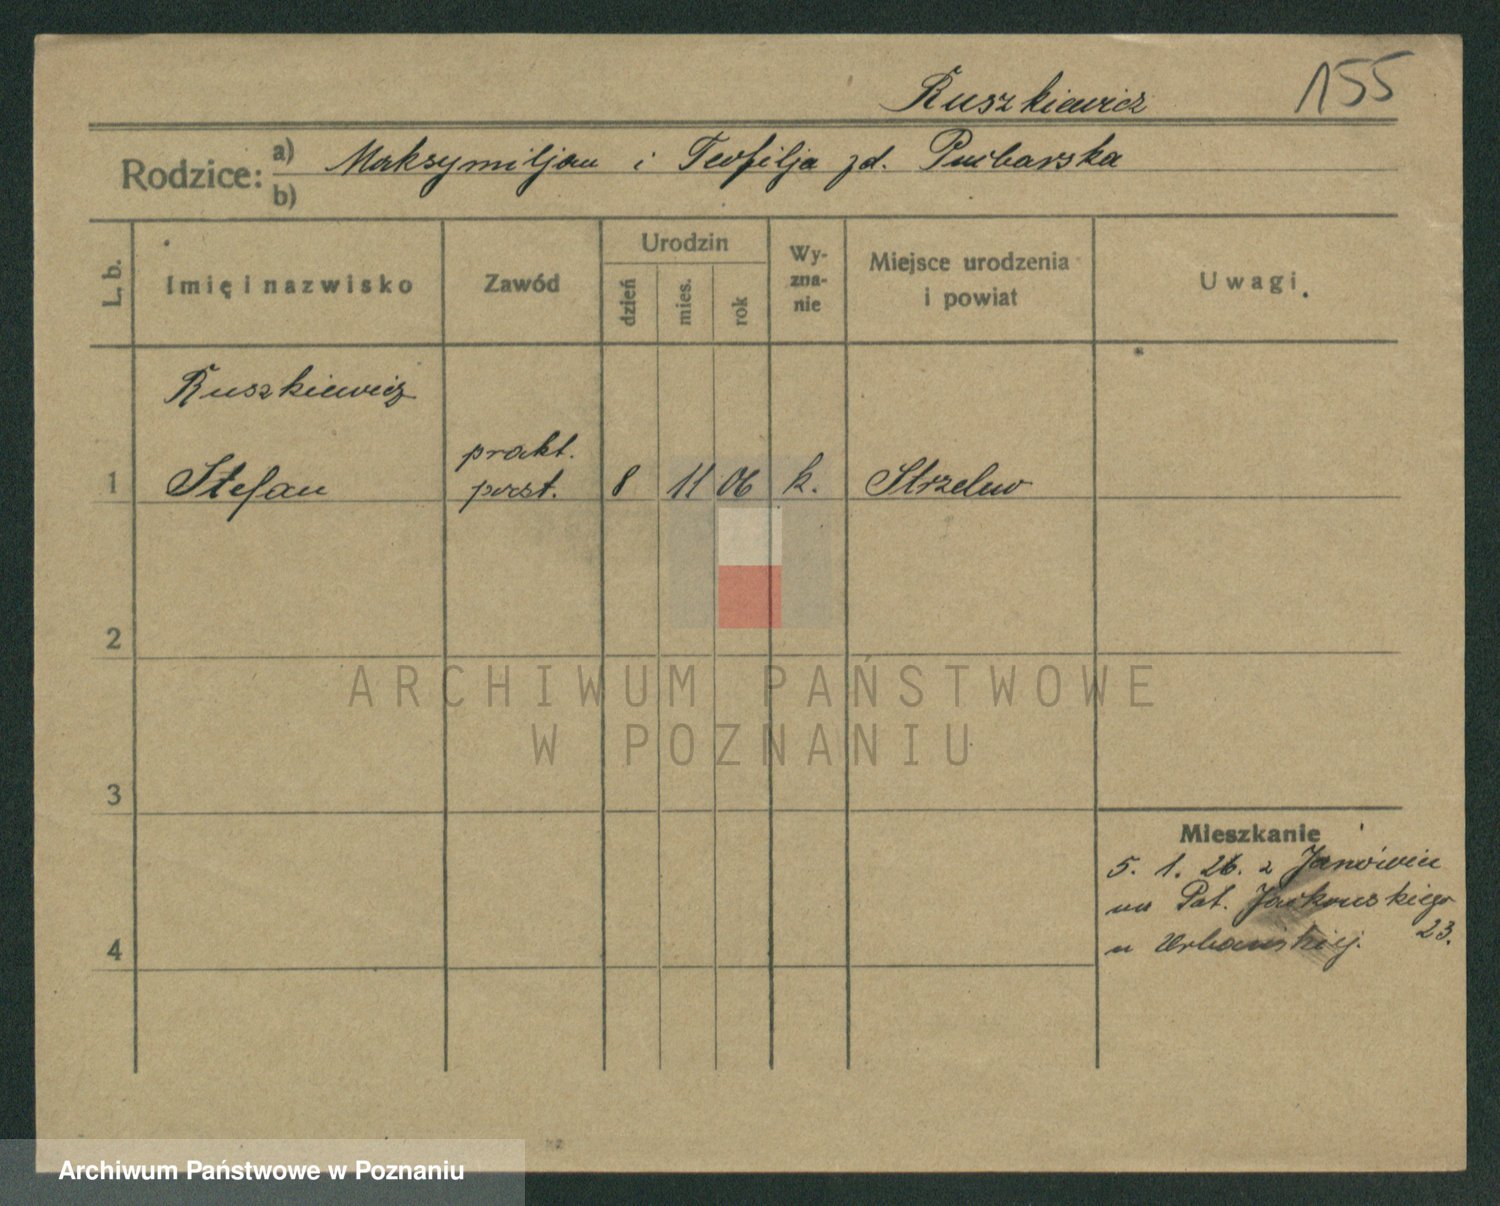 Ruszkiewicz 155
Rodzice: a) Maksymiljan i Teofilja zd. Pucharska
b)
L. b.
Imię i nazwisko
Zawód
Urodzin
dzień
mies.
rok
Wy-
zna-
nie
Miejsce urodzenia
i powiat
Uwagi.
Ruszkiewicz
prakt.
1 Stefan poczt. 8 11 06 k. Strzelno
2
ARCHIWUM PAŃSTWOWE
W POZNANIU
3
Mieszkanie
5. 1. 26. z Janówiec
na Pat. Jackowskiego
23.
u Urbańskiej.
4
Archiwum Państwowe w Poznaniu